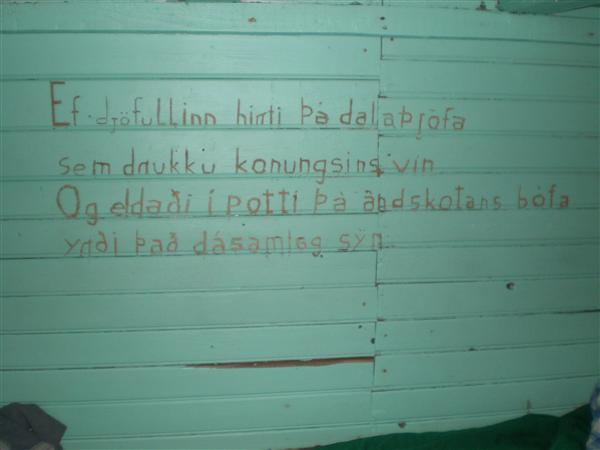 Ef djöfullinn hirti þá dalaþjófa
sem drukku konungsins vín
Og eldaði í potti þá andskotans bófa
yrði það dásamleg sýn